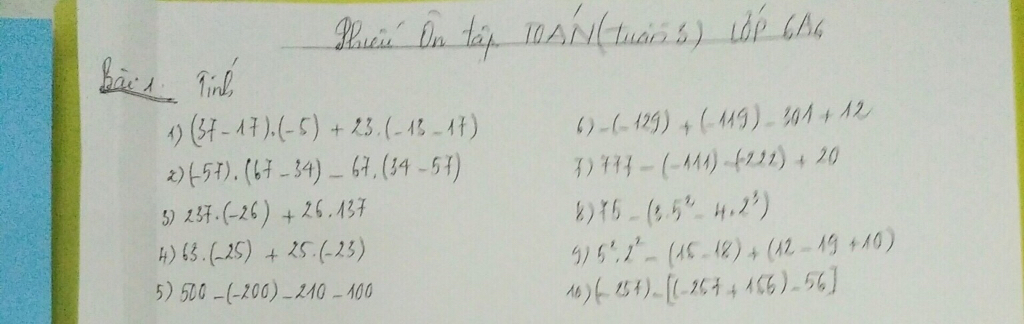 Phiếu Ôn tập TOÁN (tuần 3) LỚP 6A6
Bài 1. Tính
1) (37 - 17).(-5) + 23.(-13 - 17)
2) (-57).(67 - 34) - 67.(34 - 57)
3) 237.(-26) + 26.137
4) 63.(-25) + 25.(-23)
5) 500 - (-200) - 210 - 100
6) -(-129) + (-119) - 301 + 12
7) 777 - (-111) - (-222) + 20
8) 75 - (3.5² - 4.2³)
9) 5².2² - (15 - 18) + (12 - 19 + 10)
10) (-257) - [(-257 + 156) - 56]